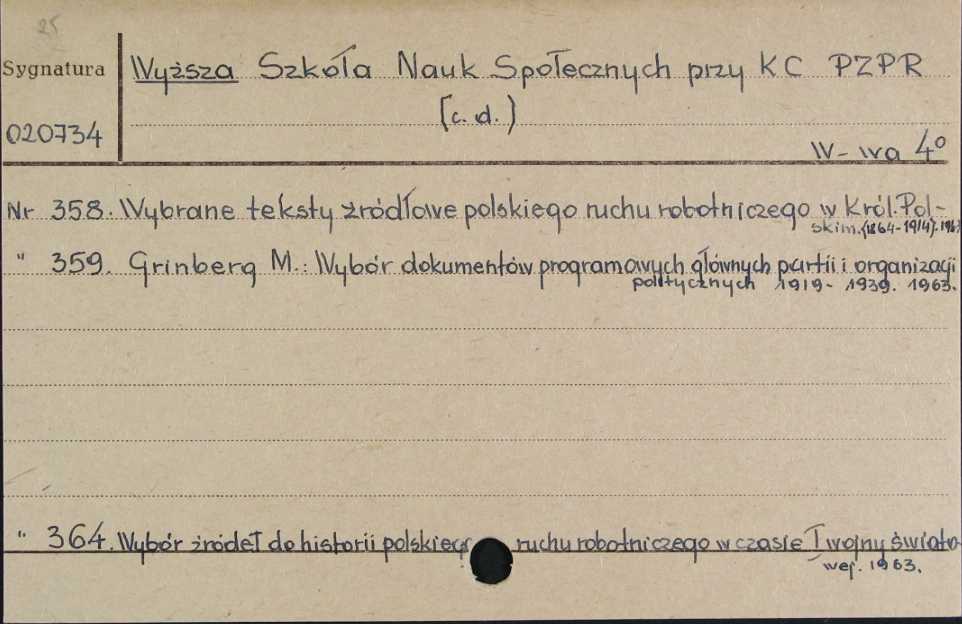 25
Sygnatura
Wyższa Szkoła Nauk Społecznych przy KC PZPR
[c. d.)
020734
W-wa 4°
Nr 358. Wybrane teksty źródłowe polskiego ruchu robotniczego w Król. Pol-
skim. (1864-1914). 1963
" 359. Grinberg M.: Wybór dokumentów programowych głównych partii i organizacji
politycznych 1919-1939. 1963.
" 364. Wybór źródeł do historii polskiego ruchu robotniczego w czasie I wojny świato-
wej. 1963.